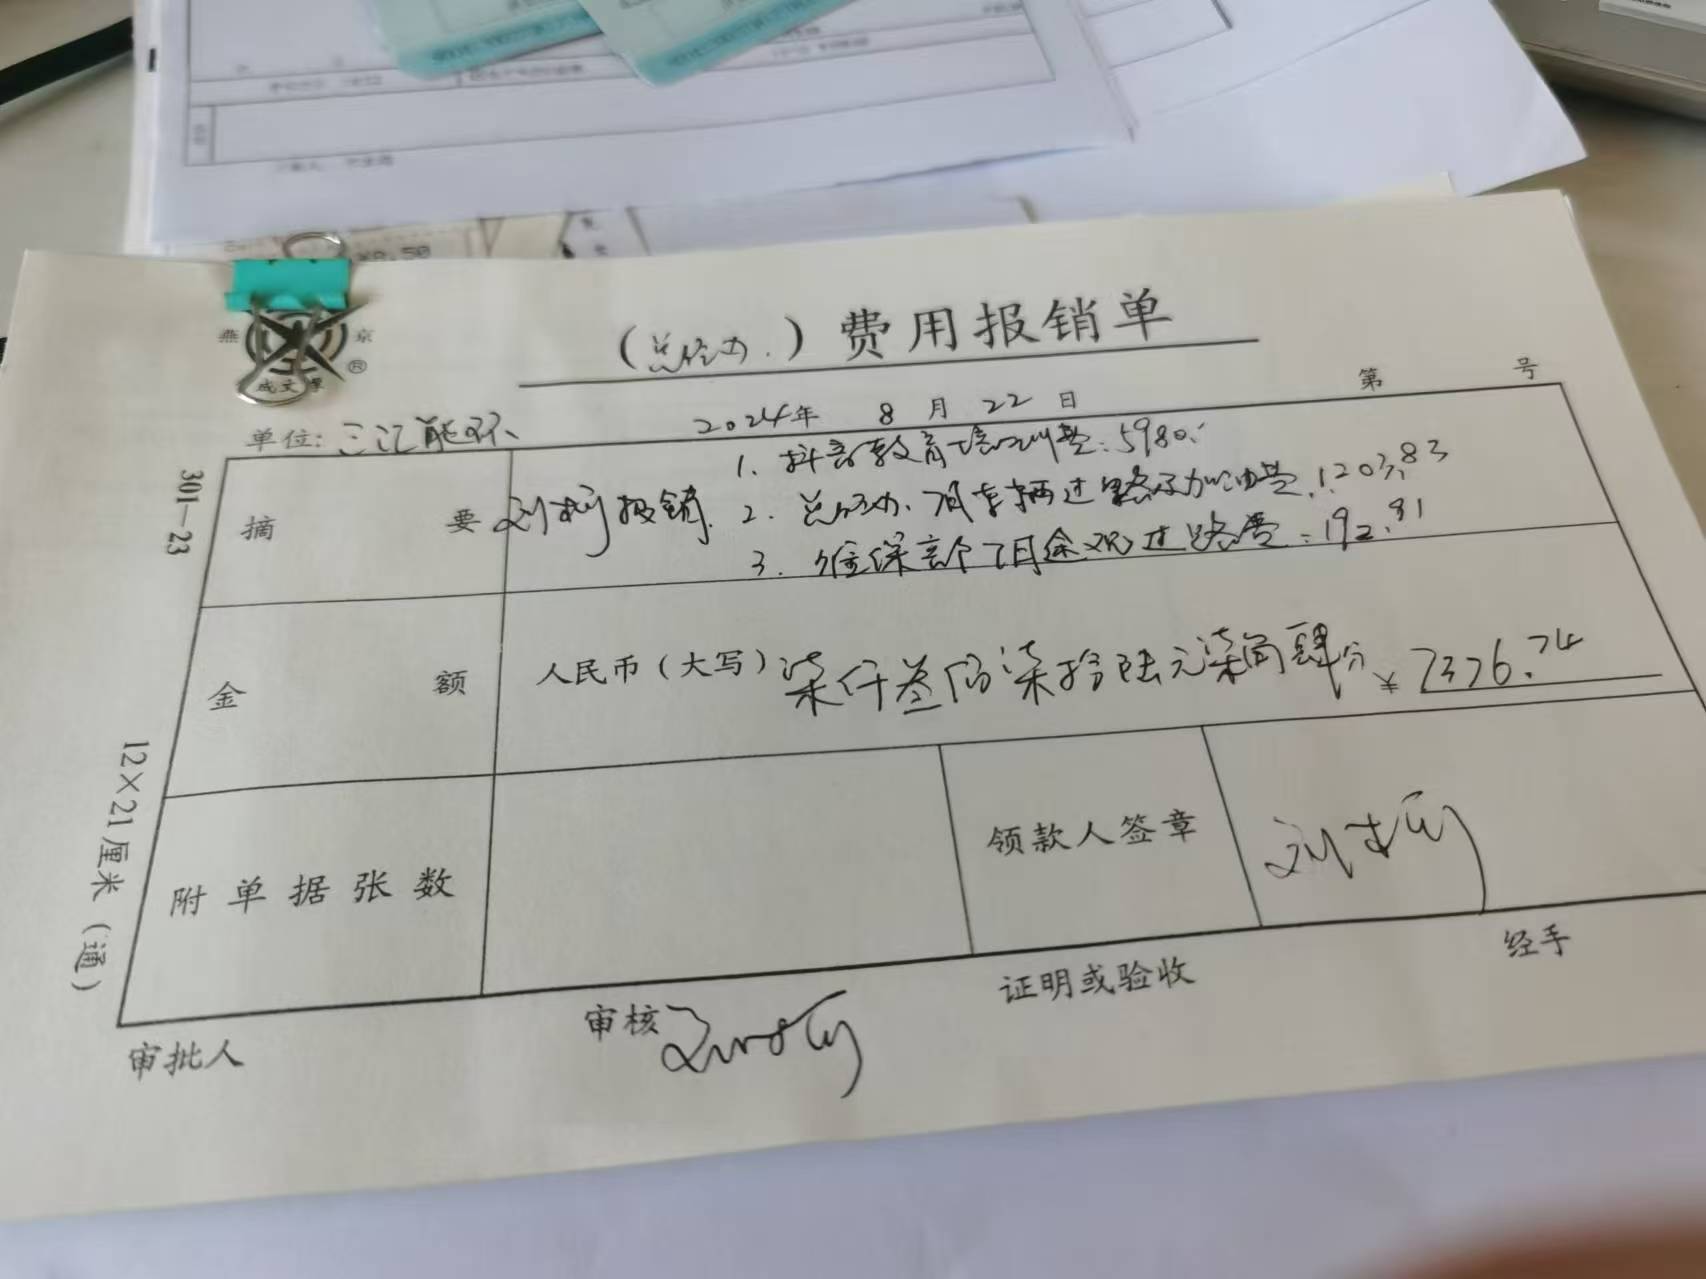 ¥8.50
燕 京
®
成文厚
（总经办.）费用报销单
单位: 三汇能环 2024年 8月 22日 第 号
摘要
刘 报销.
1. 抖音教育培训费: 5980.
2. 总经办. 7月车辆过路及加油费. 1203.83
3. 维保部7月途观过路费: 192.91
金额
人民币（大写）柒仟叁佰柒拾陆元柒角肆分 ¥ 7376.74
附单据张数
领款人签章
审批人
审核
证明或验收
经手
301—23
12×21厘米（通）